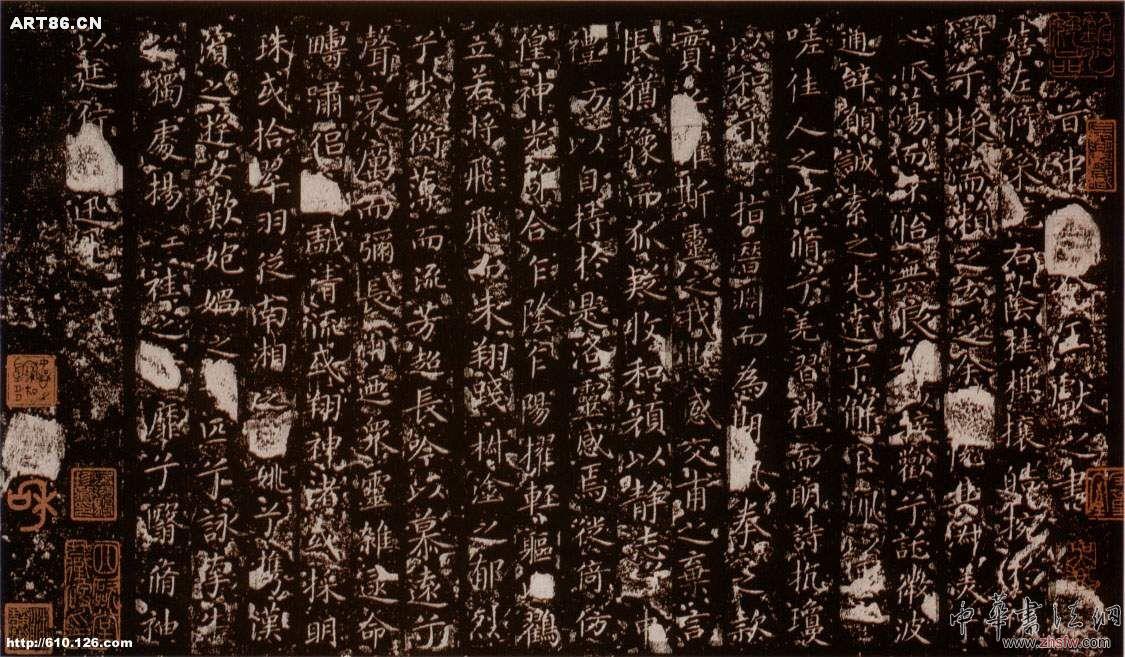 ART86.CN
晉中令王獻之書
嬉左倚采右蔭桂旗攘皓捥
滸兮採湍瀨之玄芝余淑美
心振蕩而不怡無良接歡兮託微波
通辭願誠素之先達兮解玉珮以
嗟佳人之信脩兮羌習禮而明詩抗瓊
以和予兮指潛淵而為期拳之款
實懼斯靈之我欺感交甫之棄言
悵猶豫而狐疑收和顏以静志兮申
禮防以自持於是洛靈感焉徙倚仿
偟神光離合乍陰乍陽擢輕軀鶴
立若將飛而未翔踐椒塗之郁烈
兮步衡薄而流芳超長吟以慕遠兮
聲哀厲而彌長爾迺衆靈雜遝命
疇嘯侶戲清流或翔神渚或採明
珠或拾翠羽從南湘之姚兮攜漢
濱之遊女歎匏媧之匹兮詠牽牛
之獨處揚輕袿之靡兮翳脩袖
以延佇迅飛
http://610.126.com
中華書法網
www.zhsfw.com